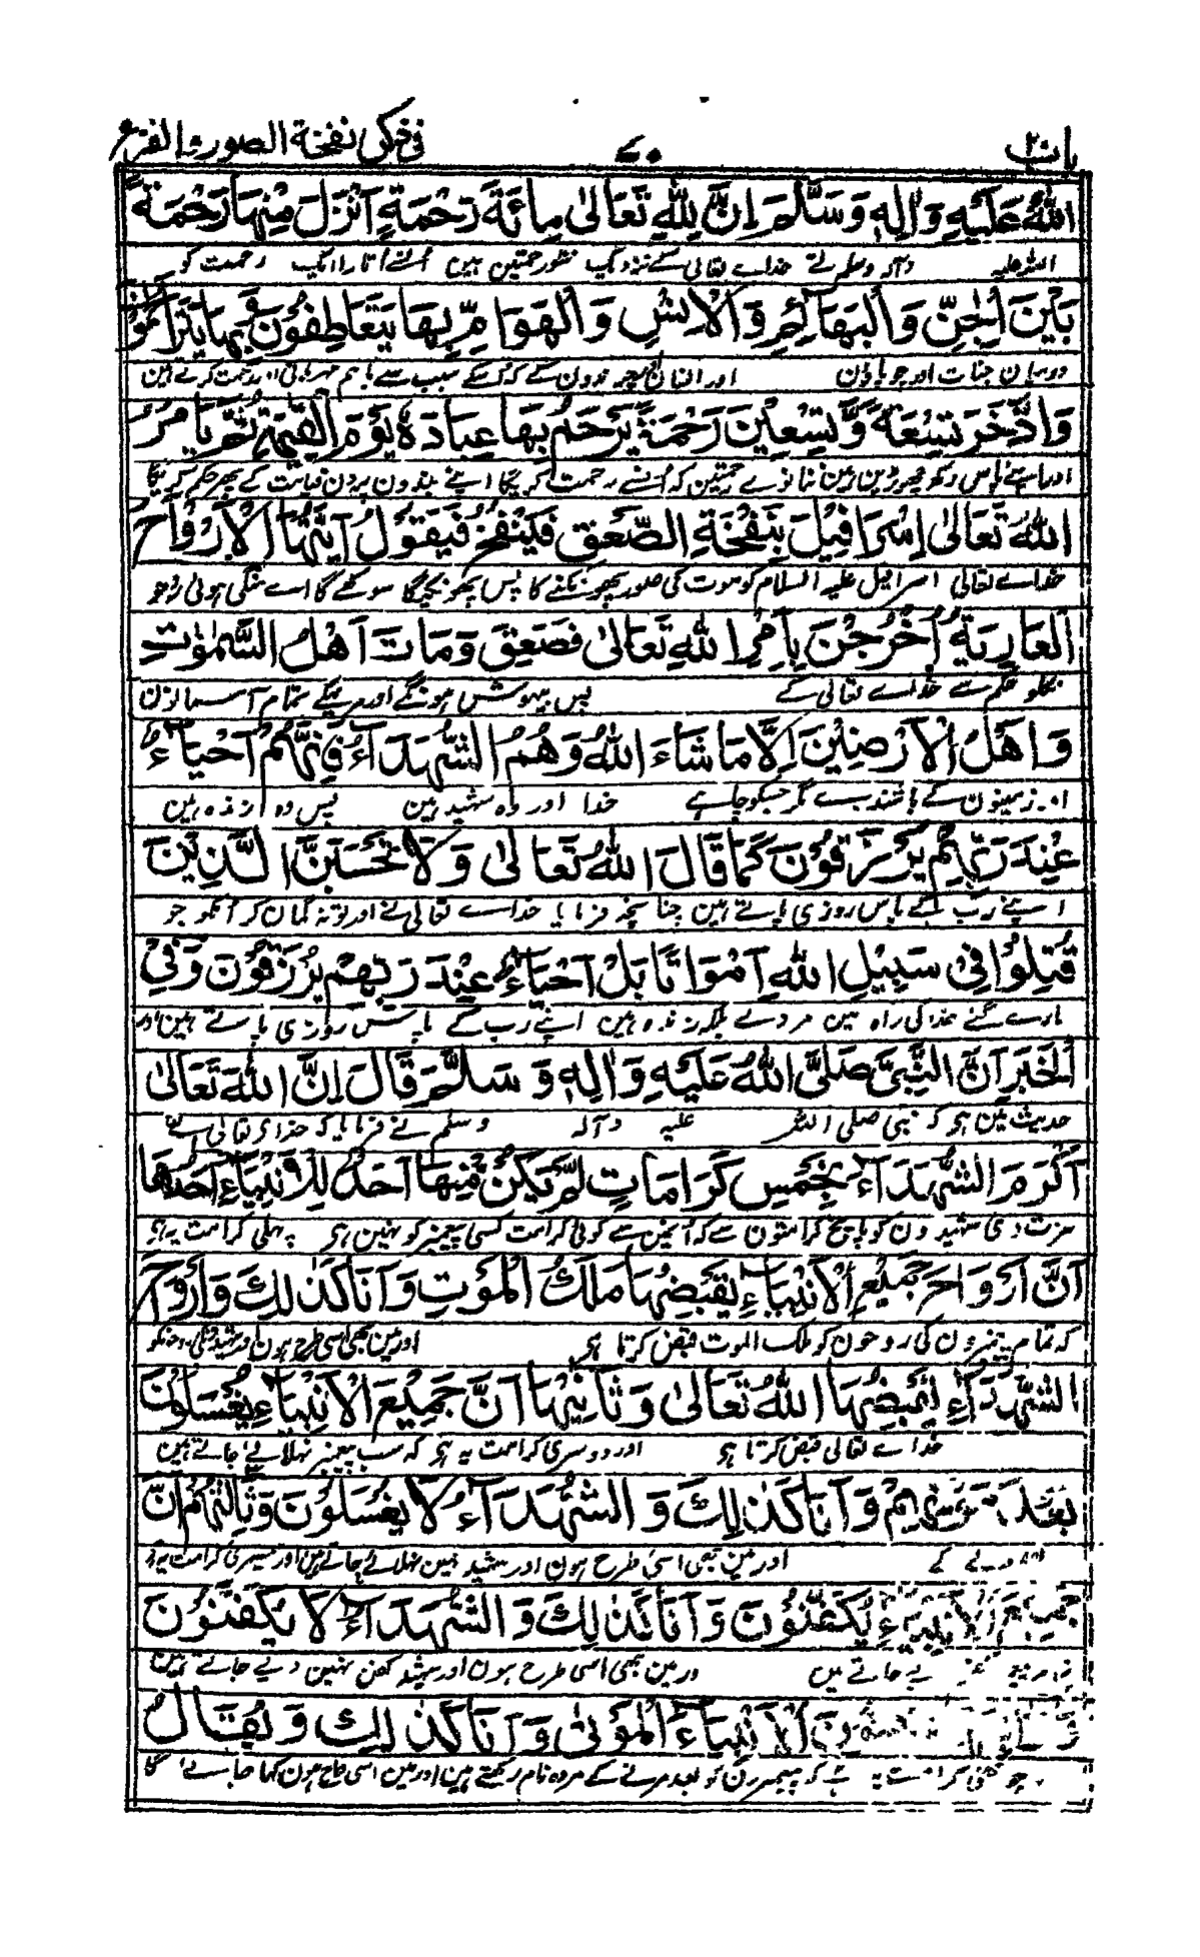 باب ۲۰ ۷۰ فی ذکر نفخة الصور والفزع
اللهُ عَلَيْهِ وَاٰلِهٖ وَسَلَّمَ اِنَّ لِلّٰهِ تَعَالىٰ مِائَةَ رَحْمَةٍ اَنْزَلَ مِنْهَا رَحْمَةً
اللہ علیہ وآلہ وسلم نے خداے تعالی کے نزدیک سو رحمتین ہین اُسنے اُتارا ایک رحمت کو
بَيْنَ الْجِنِّ وَالْبَهَائِمِ وَالْاِنْسِ وَالْهَوَامِّ بِهَا يَتَعَاطِفُوْنَ وَبِهَا يَتَرَاحَمُوْنَ
درمیان جنات اور چوپاؤن اور انسان کے کہ اُسکے سبب سے باہم مہربانی اور رحمت کرتے ہین
وَادَّخَرَ تِسْعَةً وَّتِسْعِيْنَ رَحْمَةً يَرْحَمُ بِهَا عِبَادَهٗ يَوْمَ الْقِيٰمَةِ ثُمَّ يَامُرُ
اور اپنے پاس رکھ چھوڑین ننانوے رحمتین کہ اُنسے رحمت کریگا اپنے بندون پر دن قیامت کے پھر حکم کریگا
اللهُ تَعَالىٰ اِسْرَافِيْلَ بِنَفْخَةِ الصَّعْقِ فَيَنْفُخُ فَيَقُوْلُ اَيَّتُهَا الْاَرْوَاحُ
خداے تعالی اسرافیل علیہ السلام کو موت کی صور پھونکنے کا پس پھونکیگا سو کہے گا اے ننگی ہوئی روحو
الْعَارِيَةُ اُخْرُجْنَ بِاَمْرِ اللهِ تَعَالىٰ فَصَعِقَ وَمَاتَ اَهْلُ السَّمٰوٰتِ
نکلو حکم سے خداے تعالی کے پس بیہوش ہونگے اور مرینگے تمام آسمانون
وَاَهْلُ الْاَرْضِيْنَ اِلَّا مَا شَاءَ اللهُ وَهُمُ الشُّهَدَآءُ فَاِنَّهُمْ اَحْيَاءٌ
اور زمینون کے باشندے مگر جسکو چاہے خدا اور وہ شہید ہین پس وہ زندہ ہین
عِنْدَ رَبِّهِمْ يُرْزَقُوْنَ كَمَا قَالَ اللهُ تَعَالىٰ وَلَا تَحْسَبَنَّ الَّذِيْنَ
اپنے رب کے پاس روزی پاتے ہین چنانچہ فرمایا خداے تعالی نے اور تو نہ گمان کر اُنکو جو
قُتِلُوْا فِیْ سَبِيْلِ اللهِ اَمْوَاتًا بَلْ اَحْيَاءٌ عِنْدَ رَبِّهِمْ يُرْزَقُوْنَ وَفِیْ
مارے گئے خدا کی راہ مین مردے بلکہ زندہ ہین اپنے رب کے پاس روزی پاتے ہین اور
الْخَبَرِ اَنَّ النَّبِیَّ صَلَّی اللهُ عَلَيْهِ وَاٰلِهٖ وَسَلَّمَ قَالَ اِنَّ اللهَ تَعَالىٰ
حدیث مین ہو کہ نبی صلی اللہ علیہ وآلہ وسلم نے فرمایا کہ خداے تعالی نے
اَكْرَمَ الشُّهَدَآءَ بِخَمْسِ كَرَامَاتٍ لَمْ يَكُنْ مِّنْهَا اَحَدٌ لِلْاَنْبِيَاءِ اَحَدُهَا
عزت دی شہیدون کو پانچ کرامتون سے کہ اُنمین سے کوئی کرامت کسی پیغمبر کو نہین ہو پہلی کرامت یہ ہو
اَنَّ اَرْوَاحَ جَمِيْعِ الْاَنْبِيَاءِ يَقْبِضُهَا مَلَكُ الْمَوْتِ وَاَنَا كَذٰلِكَ وَاَرْوَاحُ
کہ تمام پیغمبرون کی روحون کو ملک الموت قبض کرتا ہو اور مین بھی اسی طرح ہون اور شہیدونکی روحونکو
الشُّهَدَآءِ يَقْبِضُهَا اللهُ تَعَالىٰ وَثَانِيْهَا اَنَّ جَمِيْعَ الْاَنْبِيَاءِ يُغْسَلُوْنَ
خداے تعالی قبض کرتا ہو اور دوسری کرامت یہ ہو کہ سب پیغمبر نہلائے جاتے ہین
بَعْدَ مَوْتِهِمْ وَاَنَا كَذٰلِكَ وَالشُّهَدَآءُ لَا يُغْسَلُوْنَ وَثَالِثُهَا اَنَّ
کے اور مین بھی اسی طرح ہون اور شہید نہین نہلائے جاتے ہین اور تیسری کرامت یہ ہو
جَمِيْعَ الْاَنْبِيَاءِ يُكَفَّنُوْنَ وَاَنَا كَذٰلِكَ وَالشُّهَدَآءُ لَا يُكَفَّنُوْنَ
جاتے ہیں اور مین بھی اسی طرح ہون اور شہید کفن نہین دیے جاتے ہین
الْاَنْبِيَاءُ الْمَوْتىٰ وَاَنَا كَذٰلِكَ وَيُقَالُ
چوتھی کرامت یہ ہے کہ پیغمبرون کو بعد مرنے کے مردہ نام رکھتے ہین اور مین اسی طرح ہون کہا جائے گا